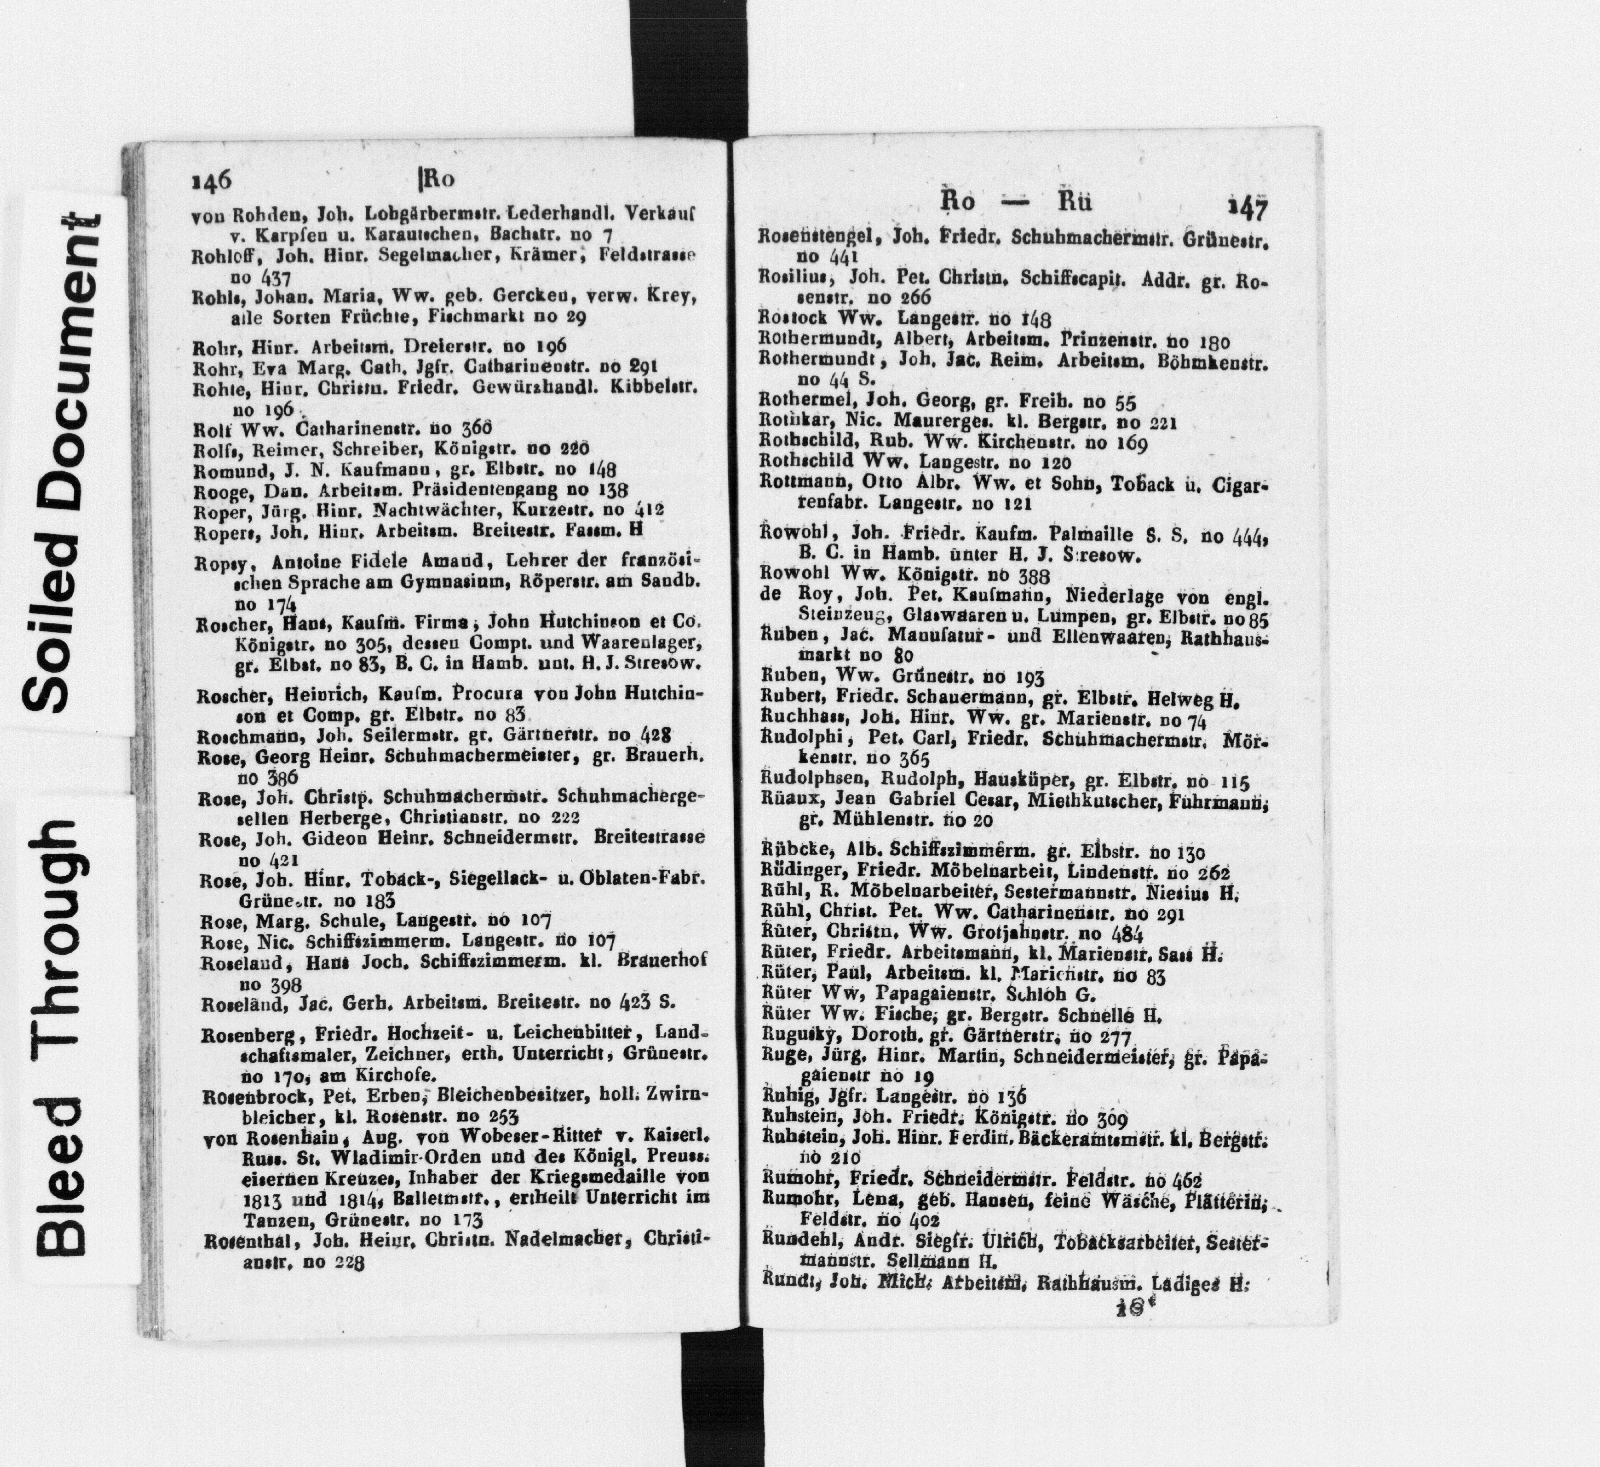 Soiled Document
Bleed Through
146 Ro
von Rohden, Joh. Lohgärbermstr. Lederhandl. Verkauf
v. Karpfen u. Karautschen, Bachstr. no 7
Rohloff, Joh. Hinr. Segelmacher, Krämer, Feldstrasse
no 437
Rohls, Johan. Maria, Ww. geb. Gercken, verw. Krey,
alle Sorten Früchte, Fischmarkt no 29
Rohr, Hinr. Arbeitsm. Dreierstr. no 196
Rohr, Eva Marg. Cath. Jgfr. Catharinenstr. no 291
Rohte, Hinr. Christn. Friedr. Gewürzhandl. Kibbelstr.
no 196
Rolf Ww. Catharinenstr. no 360
Rolfs, Reimer, Schreiber, Königstr. no 220
Romund, J. N. Kaufmann, gr. Elbstr. no 148
Rooge, Dan. Arbeitsm. Präsidentengang no 138
Roper, Jürg. Hinr. Nachtwächter, Kurzestr. no 412
Ropers, Joh. Hinr. Arbeitsm. Breitestr. Fassm. H
Ropsy, Antoine Fidele Amand, Lehrer der französi-
schen Sprache am Gymnasium, Röperstr. am Sandb.
no 174
Roscher, Hans, Kaufm. Firma, John Hutchinson et Co.
Königstr. no 305, dessen Compt. und Waarenlager,
gr. Elbst. no 83, B. C. in Hamb. unt. H. J. Stresow.
Roscher, Heinrich, Kaufm. Procura von John Hutchin-
son et Comp. gr. Elbstr. no 83
Roschmann, Joh. Seilermstr. gr. Gärtnerstr. no 428
Rose, Georg Heinr. Schuhmachermeister, gr. Brauerh.
no 386
Rose, Joh. Christp. Schuhmachermstr. Schuhmacherge-
sellen Herberge, Christianstr. no 222
Rose, Joh. Gideon Heinr. Schneidermstr. Breitestrasse
no 421
Rose, Joh. Hinr. Toback-, Siegellack- u. Oblaten-Fabr.
Grünestr. no 183
Rose, Marg. Schule, Langestr. no 107
Rose, Nic. Schiffszimmerm. Langestr. no 107
Roseland, Hans Joch. Schiffszimmerm. kl. Brauerhof
no 398
Roseland, Jac. Gerh. Arbeitsm. Breitestr. no 423 S.
Rosenberg, Friedr. Hochzeit- u. Leichenbitter, Land-
schaftsmaler, Zeichner, erth. Unterricht, Grünestr.
no 170, am Kirchofe.
Rosenbrock, Pet. Erben, Bleichenbesitzer, holl. Zwirn-
bleicher, kl. Rosenstr. no 253
von Rosenhain, Aug. von Wobeser-Ritter v. Kaiserl.
Russ. St. Wladimir-Orden und des Königl. Preuss.
eisernen Kreuzes, Inhaber der Kriegsmedaille von
1813 und 1814, Balletmstr., ertheilt Unterricht im
Tanzen, Grünestr. no 173
Rosenthal, Joh. Heinr. Christn. Nadelmacher, Christi-
anstr. no 228
Ro — Rü 147
Rosenstengel, Joh. Friedr. Schuhmachermstr. Grünestr.
no 441
Rosilius, Joh. Pet. Christn. Schiffscapit. Addr. gr. Ro-
senstr. no 266
Rostock Ww. Langestr. no 148
Rothermundt, Albert, Arbeitsm. Prinzenstr. no 180
Rothermundt, Joh. Jac. Reim. Arbeitsm. Böhmkenstr.
no 44 S.
Rothermel, Joh. Georg, gr. Freih. no 55
Rothkar, Nic. Maurerges. kl. Bergstr. no 221
Rothschild, Rub. Ww. Kirchenstr. no 169
Rothschild Ww. Langestr. no 120
Rottmann, Otto Albr. Ww. et Sohn, Toback u. Cigar-
renfabr. Langestr. no 121
Rowohl, Joh. Friedr. Kaufm. Palmaille S. S. no 444,
B. C. in Hamb. unter H. J. Stresow.
Rowohl Ww. Königstr. no 388
de Roy, Joh. Pet. Kaufmann, Niederlage von engl.
Steinzeug, Glaswaaren u. Lumpen, gr. Elbstr. no 85
Ruben, Jac. Manufatur- und Ellenwaaren, Rathhaus-
markt no 80
Ruben, Ww. Grünestr. no 193
Rubert, Friedr. Schauermann, gr. Elbstr. Helweg H.
Ruchhass, Joh. Hinr. Ww. gr. Marienstr. no 74
Rudolphi, Pet. Carl, Friedr. Schuhmachermstr. Mör-
kenstr. no 365
Rudolphsen, Rudolph, Hausküper, gr. Elbstr. no 115
Rüaux, Jean Gabriel Cesar, Miethkutscher, Fuhrmann,
gr. Mühlenstr. no 20
Rübcke, Alb. Schiffszimmerm. gr. Elbstr. no 130
Rüdinger, Friedr. Möbelnarbeit, Lindenstr. no 262
Rühl, R. Möbelnarbeiter, Sestermannstr. Nietius H.
Rühl, Christ. Pet. Ww. Catharinenstr. no 291
Rüter, Christn. Ww. Grotjahnstr. no 484
Rüter, Friedr. Arbeitsmann, kl. Marienstr. Sass H.
Rüter, Paul, Arbeitsm. kl. Marienstr. no 83
Rüter Ww. Papagaienstr. Schloh G.
Rüter Ww. Fische, gr. Bergstr. Schnelle H.
Rugusky, Doroth. gr. Gärtnerstr. no 277
Ruge, Jürg. Hinr. Martin, Schneidermeister, gr. Papa-
gaienstr no 19
Ruhig, Jgfr. Langestr. no 136
Ruhstein, Joh. Friedr. Königstr. no 309
Ruhstein, Joh. Hinr. Ferdin. Bäckeramtsmstr. kl. Bergstr.
no 210
Rumohr, Friedr. Schneidermstr. Feldstr. no 462
Rumohr, Lena, geb. Hansen, feine Wäsche, Plätterin,
Feldstr. no 402
Rundehl, Andr. Siegfr. Ulrich, Tobacksarbeiter, Sester-
mannstr. Sellmann H.
Rundt, Joh. Mich. Arbeitsm. Rathhausm. Ladiges H.